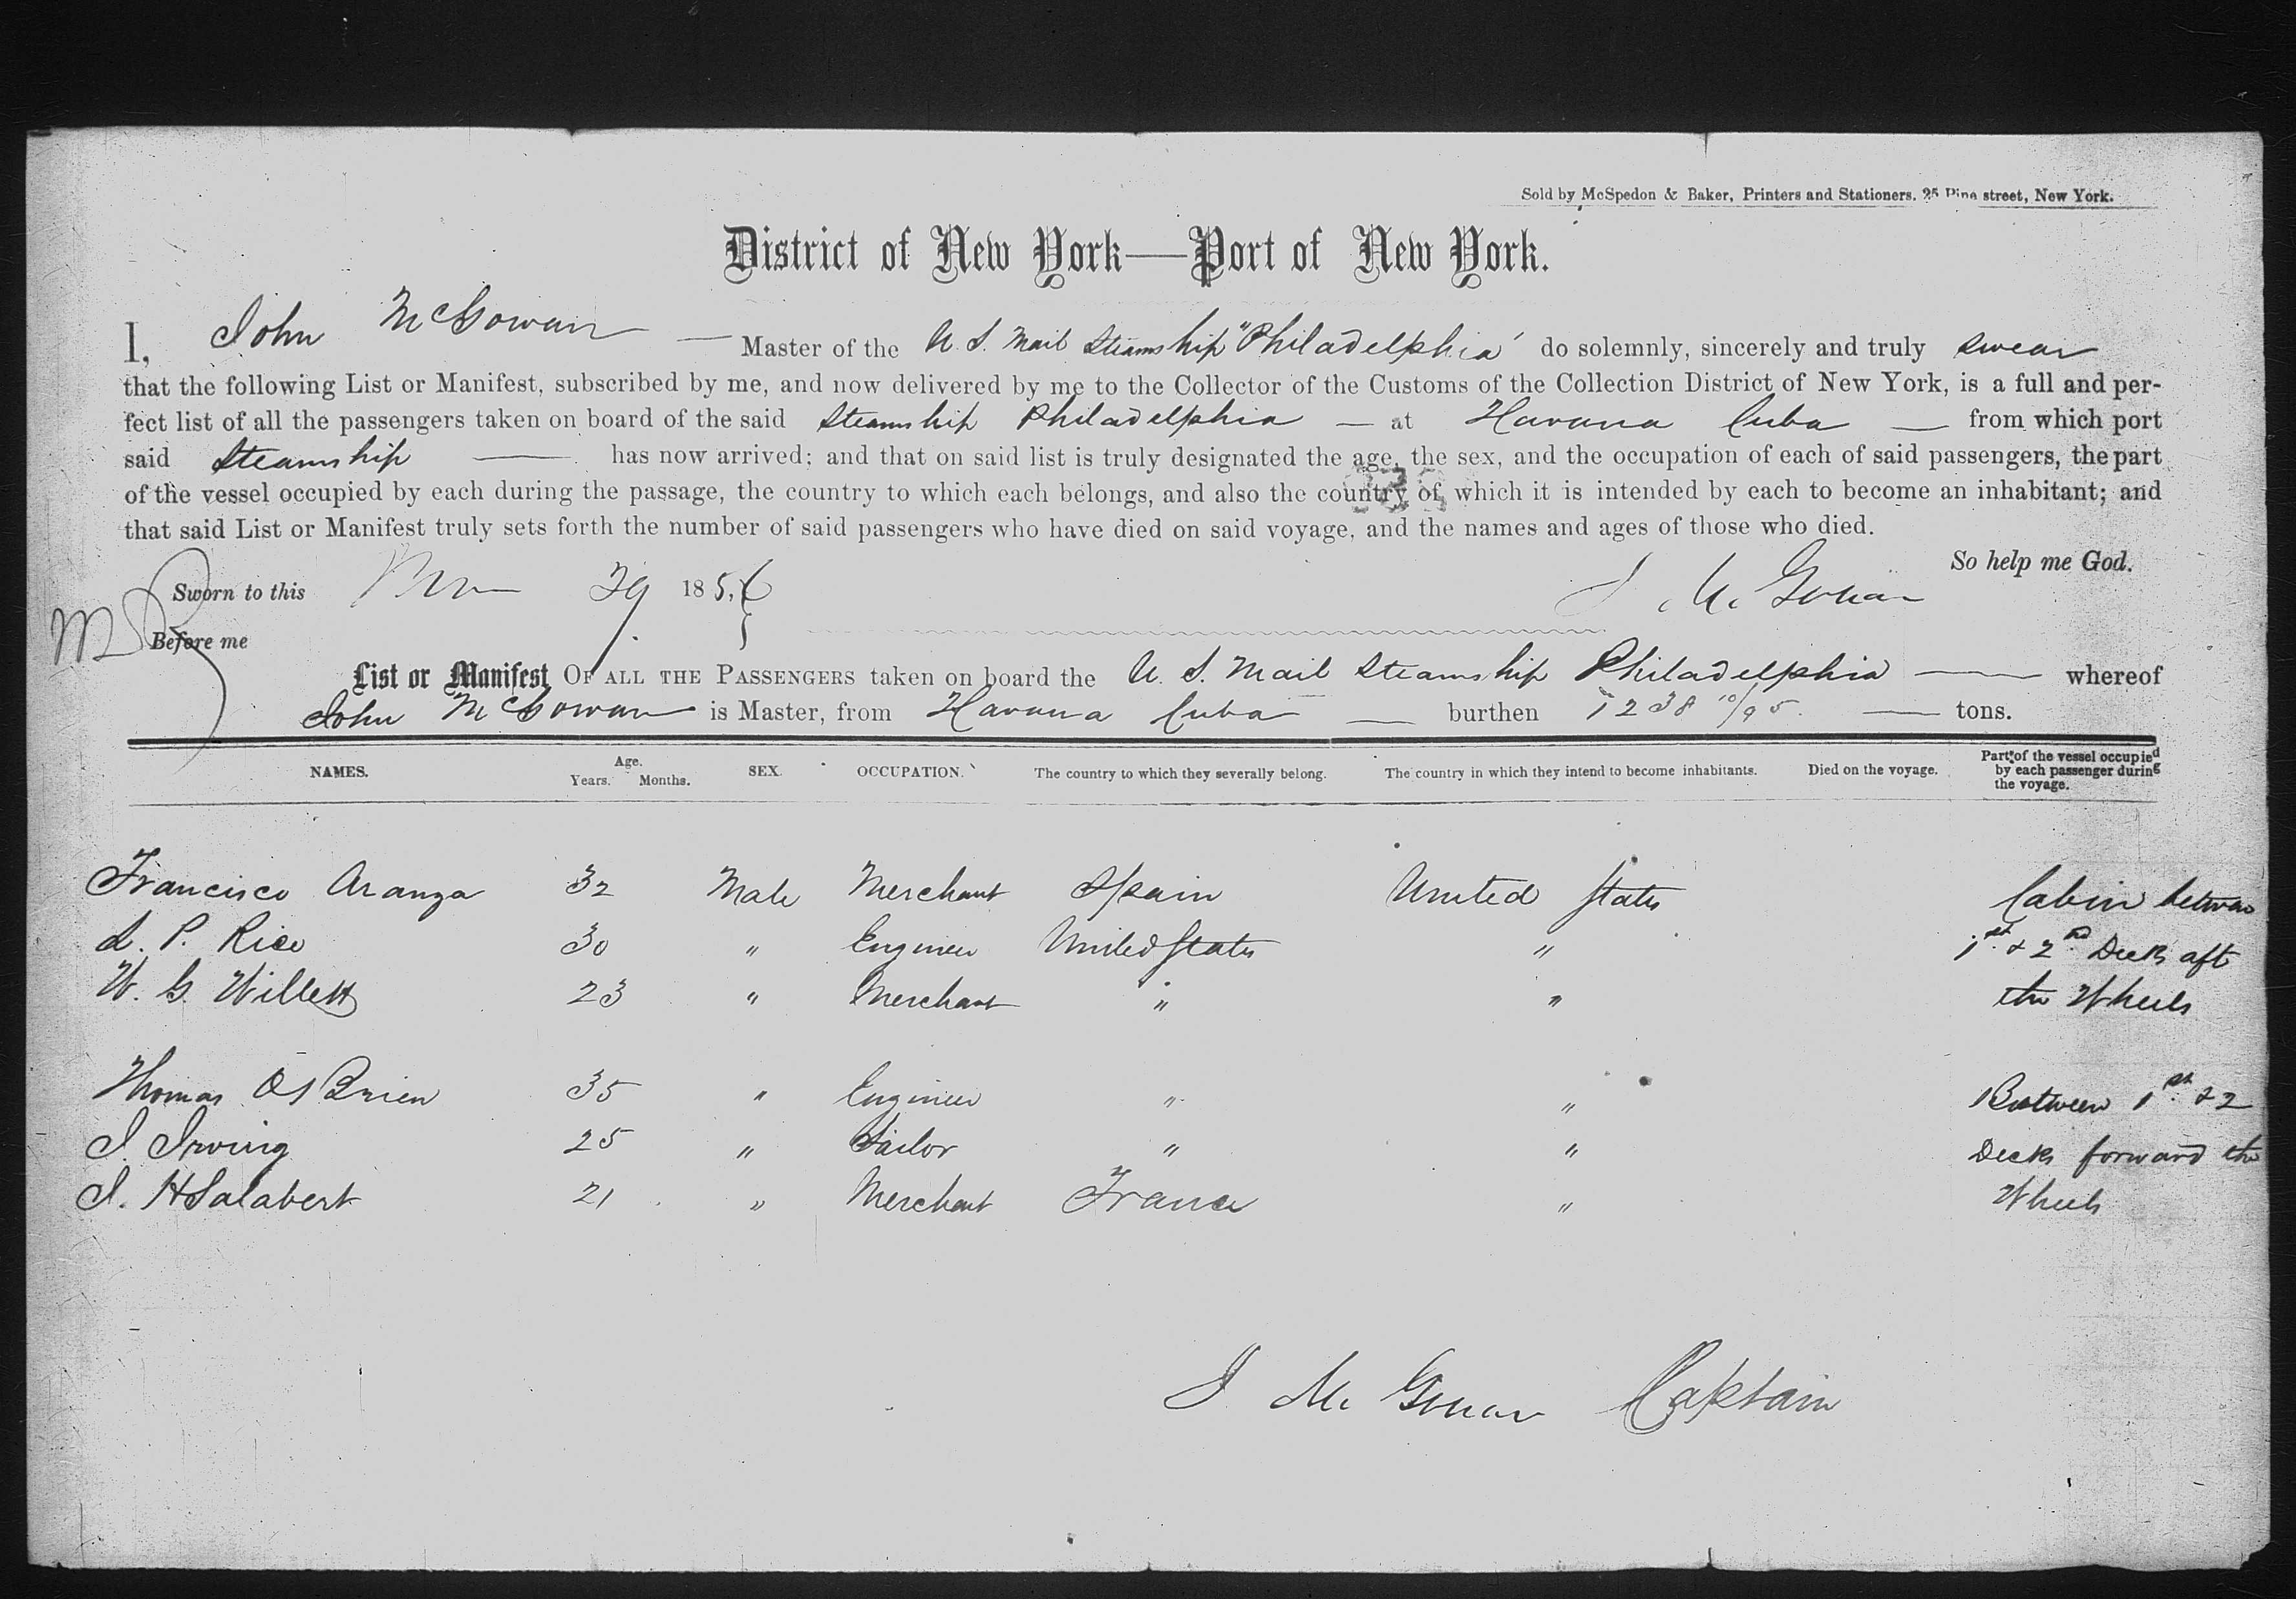 Sold by McSpedon & Baker, Printers and Stationers. 25 Pine street, New York.
District of New York—Port of New York.
I, John McGowan — Master of the U. S. Mail Steamship "Philadelphia" do solemnly, sincerely and truly swear
that the following List or Manifest, subscribed by me, and now delivered by me to the Collector of the Customs of the Collection District of New York, is a full and per-
fect list of all the passengers taken on board of the said Steamship Philadelphia — at Havana Cuba — from which port
said Steamship — has now arrived; and that on said list is truly designated the age, the sex, and the occupation of each of said passengers, the part
of the vessel occupied by each during the passage, the country to which each belongs, and also the country of which it is intended by each to become an inhabitant; and
that said List or Manifest truly sets forth the number of said passengers who have died on said voyage, and the names and ages of those who died.
So help me God.
Sworn to this Nov 29 1856 J McGowan
Before me
List or Manifest OF ALL THE PASSENGERS taken on board the U. S. Mail Steamship Philadelphia — whereof
John McGowan is Master, from Havana Cuba — burthen 1238 10/95 — tons.
NAMES. Age. Years. Months. SEX. OCCUPATION. The country to which they severally belong. The country in which they intend to become inhabitants. Died on the voyage. Part of the vessel occupied by each passenger during the voyage.
Francisco Aranza 32 Male Merchant Spain United States Cabin between
L. P. Rice 30 " Engineer United States " 1st & 2nd Deck aft
W. G. Willett 23 " Merchant " " the Wheels
Thomas O'Brien 35 " Engineer " " Between 1st & 2
J. Irving 25 " Tailor " " Decks forward the
J. H Salabert 21 " Merchant France " Wheels
J McGowan Captain